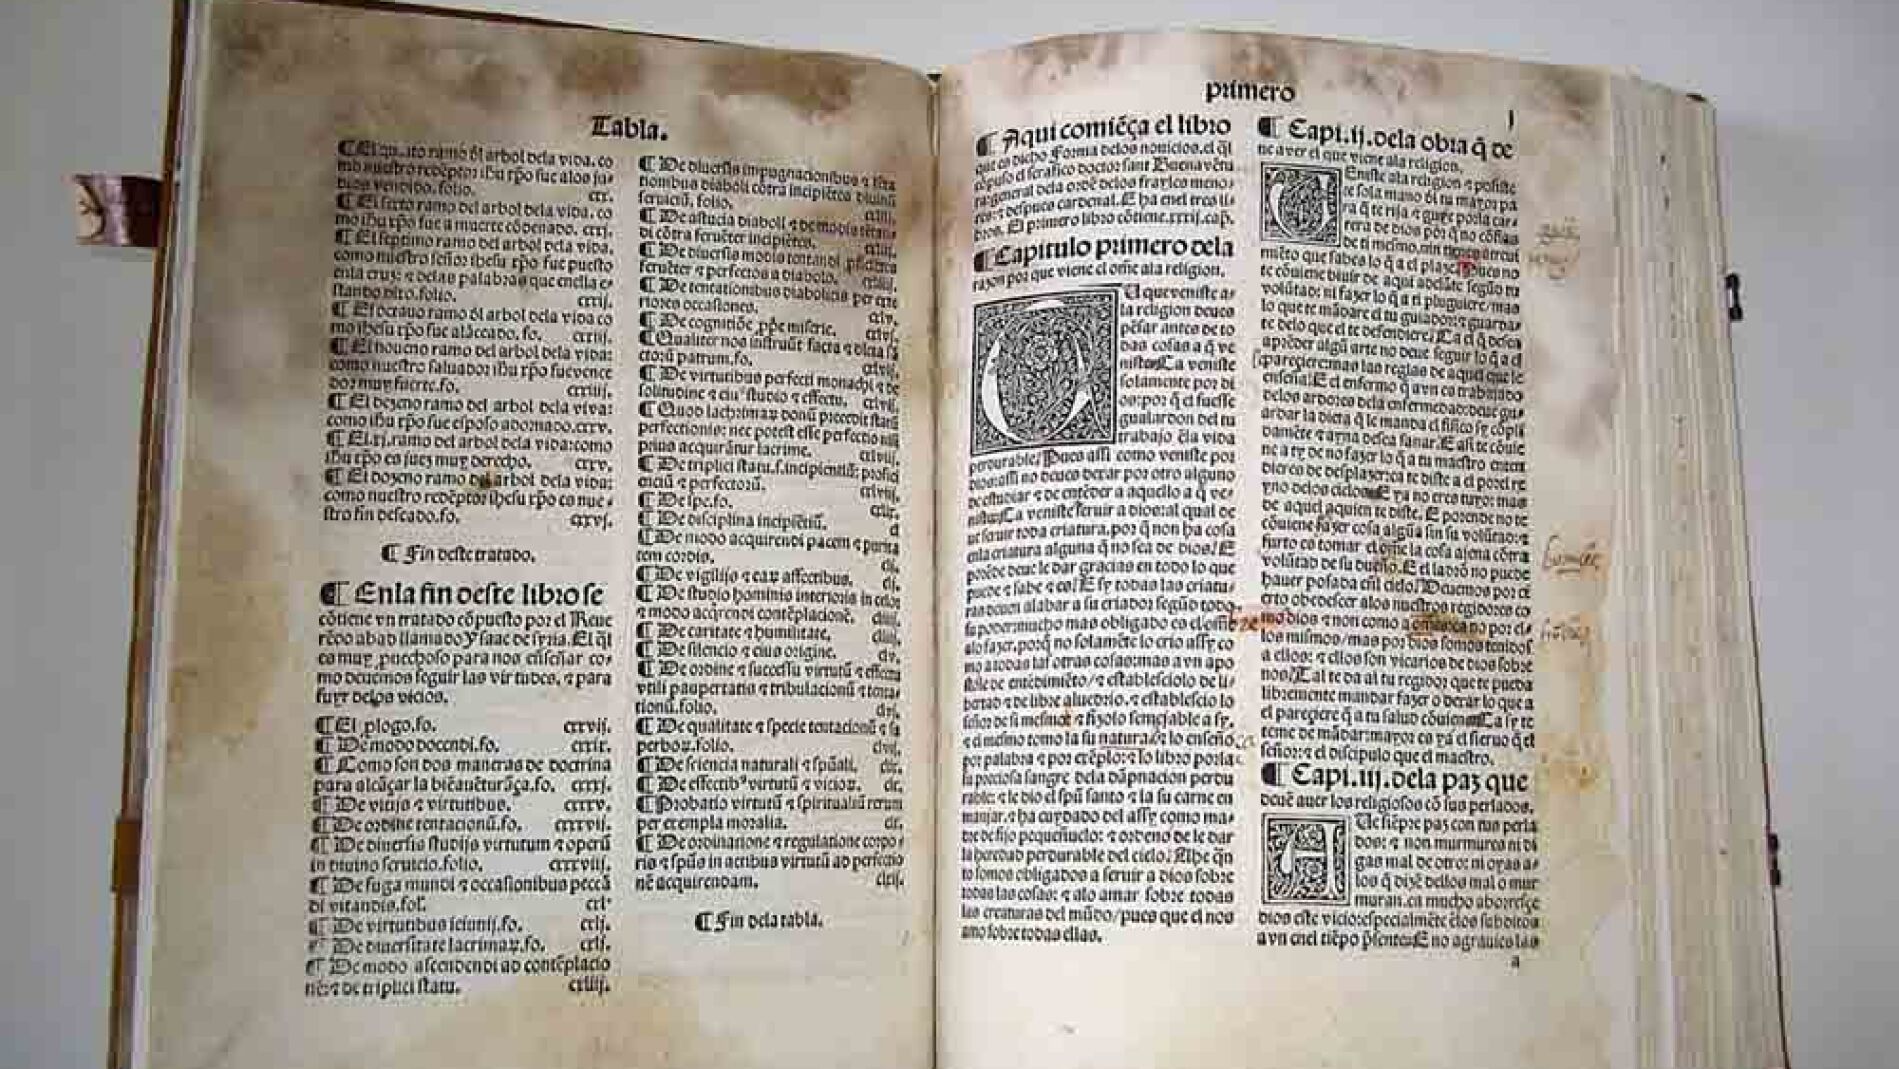 Tabla.
¶ El quinto ramo ðl arbol dela vida. co
mo nuestro redẽptor ihũ xp̃o fue alos ju
dios vendido. folio. cxx.
¶ El sexto ramo del arbol dela vida. co
mo ihũ xp̃o fue a muerte cõdenado. cxxj.
¶ El septimo ramo del arbol dela vida.
como nuestro señor ihesu xp̃o fue puesto
enla cruz: ⁊ delas palabras que enella e-
stando dixo. folio. cxxij.
¶ El octauo ramo ðl arbol dela vida co
mo ihesu xp̃o fue alãceado. fo. cxxiij.
¶ El noueno ramo del arbol dela vida:
como nuestro saluador ihũ xp̃o fue vence
dor muy fuerte. fo. cxxiiij.
¶ El dezeno ramo del arbol dela vida:
como ihũ xp̃o fue esposo adornado. cxxv.
¶ El .xj. ramo del arbol dela vida: como
ihũ xp̃o es juez muy derecho. cxxv.
¶ El dozeno ramo del arbol dela vida:
como nuestro redẽptor ihesu xp̃o es nue-
stro fin deseado. fo. cxxvj.
¶ Fin deste tratado.
¶ Enla fin deste libro se
cõtiene vn tratado cõpuesto por el Reue
rẽdo abad llamado ysaac de syria. El q̃l
es muy prouechoso para nos enseñar co-
mo deuemos seguir las virtudes, ⁊ para
fuyr delos vicios.
¶ El prologo. fo. cxxvij.
¶ De modo docendi. fo. cxxix.
¶ Como son dos maneras de doctrina
para alcãçar la biẽauẽturãça. fo. cxxxj.
¶ De vicijs ⁊ virtutibus. cxxxv.
¶ De ordine tentacionũ. fo. cxxxvij.
¶ De diuersis studijs virtutum ⁊ operũ
in diuino seruicio. folio. cxxxviij.
¶ De fuga mundi ⁊ occasionibus peccã
di vitandis. fol. cxl.
¶ De virtutibus ieiunij. fo. cxlj.
¶ De diuersitate lacrimaꝝ. fo. cxlj.
¶ De modo ascendendi ad contẽplacio
nẽ: ⁊ de triplici statu. cxliij.
¶ De diuersis impugnacionibus ⁊
tionibus diaboli cõtra incipiẽtes diuinũ
seruiciũ. folio.
¶ De astucia diaboli ⁊ de modis
di cõtra feruẽter incipiẽtes.
¶ De diuersis modis tentandi
feruẽter ⁊ perfectos a diabolo.
¶ De tentationibus diabolicis per exte
riores occasiones. cxlv.
¶ De cognitiõe ꝓpe miserie. cxlvj.
¶ Qualiter nos instruũt facta ⁊ dicta sã
ctorũ patrum. fo. cxlvij.
¶ De virtutibus perfecti monachi ⁊ de
solitudine ⁊ eiusˀ studio ⁊ effectu. cxlvij.
¶ Quod lachrimaꝝ donũ precedit statũ
perfectionis: nec potest esse perfectio nisi
prius acquirãtur lacrime. cxlviij.
¶ De triplici statu. s. incipientiũ: profici
enciũ ⁊ perfectorũ. cxlviij.
¶ De spe. fo. cxlix.
¶ De disciplina incipiẽtiũ. cl
¶ De modo acquirendi pacem ⁊ purita
tem cordis. clj.
¶ De vigilijs ⁊ eaꝝ affectibus. clj.
¶ De studio hominis interioris in celos
⁊ modo acq̃rendi contẽplacionẽ. cliij.
¶ De caritate ⁊ humilitate. cliiij.
¶ De silencio ⁊ eius origine. clv.
¶ De ordine ⁊ successu virtutũ ⁊ effectu
vtili paupertatis ⁊ tribulacionũ ⁊ tenta-
tionũ. folio. clvj.
¶ De qualitate ⁊ specie tentacionũ ⁊ su
perboꝝ. folio. clvij.
¶ De sciencia naturali ⁊ spũali. clix.
¶ De effectibˀ virtutũ ⁊ vicioꝝ. clx.
¶ Probatio virtutũ ⁊ spiritualiũ rerum
per exempla moralia. clx.
¶ De ordinatione ⁊ regulatione corpo-
ris ⁊ spũs in actibus virtutũ ad perfectio
nẽ acquirendam. clxij.
¶ Fin dela tabla.
primero
j
¶ Aqui comiẽça el libro
que es dicho Forma delos nouicios. el q̃l
cõpuso el serafico doctor sant Buenauẽtu
ra: general dela ordẽ delos frayles meno-
res: ⁊ despues cardenal. E ha enel tres li-
bros. El primero libro cõtiene .xxxij. cap.
¶ Capitulo primero dela
razon por que viene el om̃e ala religion.
Tu que veniste a
la religion deues
pẽsar antes de to
das cosas a q̃ ve
niste: Ca veniste
solamente por di
os: por q̃ el fuesse
gualardon del tu
trabajo ẽla vida
perdurable/ Pues assi como veniste por
dios: assi no deues dexar por otro alguno
de estudiar ⁊ de entẽder a aquello a q̃ ve-
niste: Ca veniste seruir a dios: al qual de
ue seruir toda criatura, por q̃ non ha cosa
enla criatura alguna q̃ no sea de dios/ E
porẽde deue le dar gracias en todo lo que
puede ⁊ sabe ⁊ es/ E sy todas las criatu-
ras deuen alabar a su criador segũd todo
su poder: mucho mas obligado es el om̃e
alo fazer, porq̃ no solamẽte lo crio assy co
mo a todas las otras cosas: mas avn apo
stole de entẽdimiẽto/ ⁊ establesciolo de li-
bertad ⁊ de libre aluedrio. ⁊ establescio lo
señor de si mesmo: ⁊ fizolo semejable a sy.
⁊ el mesmo tomo la su natura. ⁊ lo enseño
por palabra ⁊ por exẽplo: ⁊ lo libro por la
su preciosa sangre dela dãpnacion perdu
rable: ⁊ le dio el spũ santo ⁊ la su carne en
manjar. ⁊ ha cuydado del assy como ma-
dre de fijo pequeñuelo: ⁊ ordeno de le dar
la heredad perdurable del cielo. Ahe q̃n
to somos obligados a seruir a dios sobre
todas las cosas: ⁊ alo amar sobre todas
las creaturas del mũdo/ pues que el nos
amo sobre todas ellas.
¶ Capi. ij. dela obra q̃ de
ue aver el que viene ala religion.
Ueniste ala religion ⁊ posiste
te sola mano di tu mayor pa
ra q̃ te rija ⁊ guye por la car-
rera de dios por q̃ no cõfias
de ti mesmo, nin tienes
miẽto que sabes lo q̃ a el plaze: Pues no
te cõuiene biuir de aqui adelãte segũo tu
volũtad: ni fazer lo q̃ a ti pluguiere/ mas
lo que te mãdare el tu guiador: ⁊ guardar
te delo que el te defendiere/ Ca el q̃ desea
aprẽder algũ arte no deue seguir lo q̃ a el
paregiere: mas las reglas de aquel que le
enseña: E el enfermo q̃ avn es trabajado
delos ardores dela enfermedad: deue gu-
ardar la dieta q̃ le manda el fisico sy cõpli
damẽte ⁊ ayna desea sanar. E asi te cõuie
ne a ty de no fazer lo q̃ a tu maestro enten
dieres de desplazer: ca te diste a el por el re
yno delos cielos: E ya no eres tuyo: mas
de aquel a quien te diste. E porende no te
cõuiene fazer cosa algũa sin su volũtad: ⁊
furto es tomar el om̃e la cosa ajena cõtra
volũtad de su dueño. E el ladrõ no puede
hauer posada enl cielo/ Deuemos por ci
erto obedescer alos nuestros regidores co
mo dios ⁊ non como a omẽs: ca no por el-
los mismos/ mas por dios somos tenidos
a ellos: ⁊ ellos son vicarios de dios sobre
nos/ Tal te da al tu regidor que te pueda
libremente mandar fazer o dexar lo que a
el paregiere q̃ a tu salud cõuiene: Ca sy te
teme de mãdar: mayor es ya el sieruo q̃ el
señor: ⁊ el discipulo que el maestro.
¶ Capi. iij. dela paz que
deuẽ auer los religiosos cõ sus perlados.
Aue siẽpre paz con tus perla
dos: ⁊ non murmures ni di
gas mal de otro: ni oyas a-
los q̃ dizẽ dellos mal o mur
muran. ca mucho aborresçe
dios este vicio: especialmẽte ẽlos subditos
avn enel tiẽpo p̃sente: E no agrauies las
a